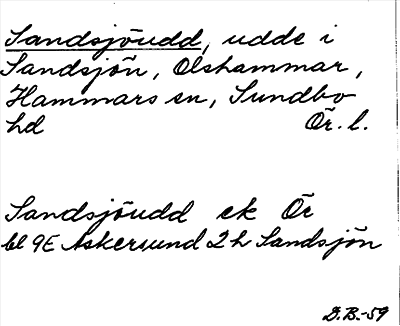 Sandsjöudd, udde i
Sandsjön, Olshammar,
Hammars sn, Sundbo
hd Ör. l.
Sandsjöudd ek Ör
bl 9E Askersund 2 h Sandsjön
D.B.-59